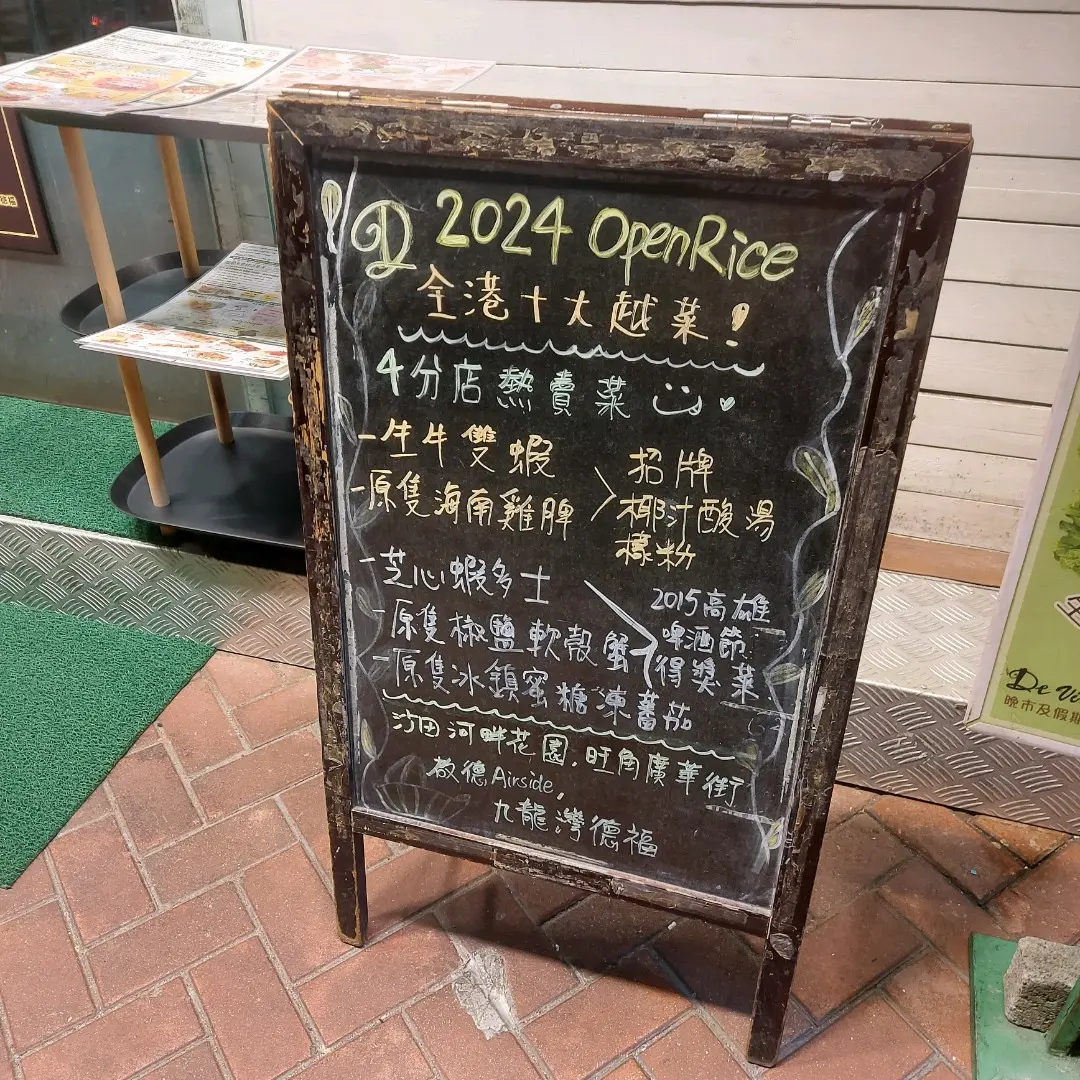 D 2024 OpenRice
全港十大越菜!
4分店熱賣菜
-生牛雙蝦
-原隻海南雞脾
招牌
椰汁酸湯
檬粉
-芝心蝦多士
-原隻椒鹽軟殼蟹
-原隻冰鎮蜜糖凍蕃茄
2015高雄
啤酒節
得獎菜
沙田河畔花園,旺角廣華街
啟德Airside,
九龍灣德福
De Vo
晚市及假期